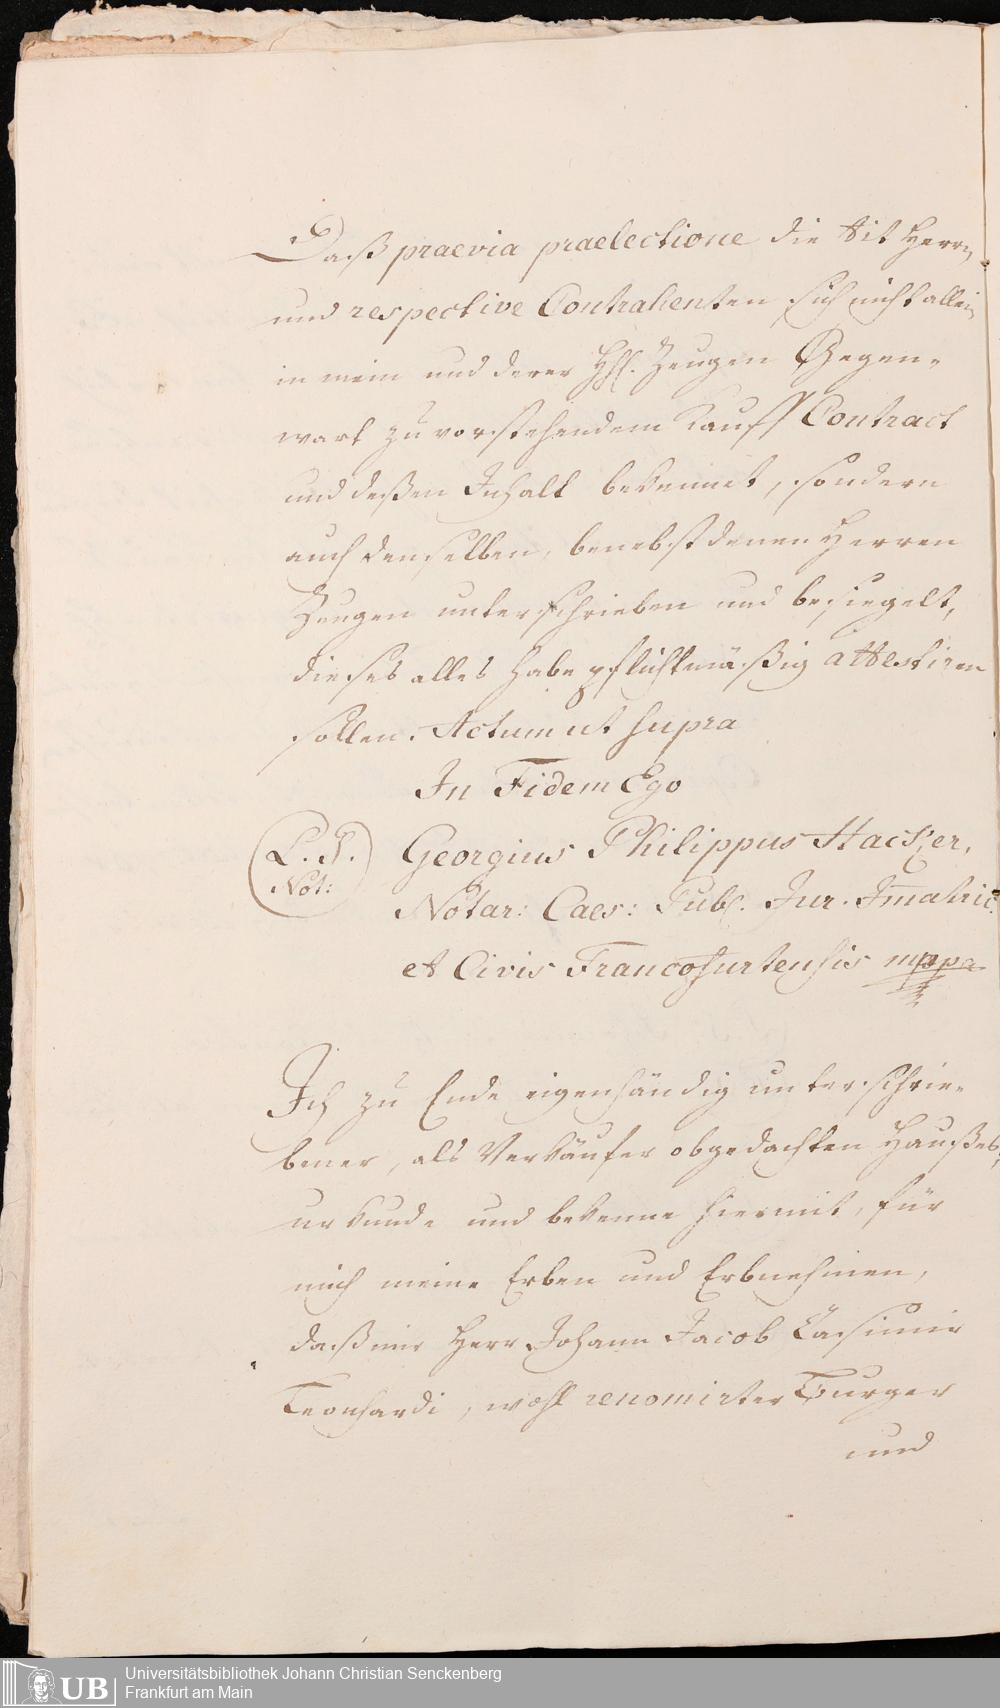 Daß praevia praelectione die Tit Herrn
und respective Contrahenten sich nicht allein
in mein und derer Hℏ. Zeugen Gegen-
wart zu vorstehendem Kauff Contract
und deßen Inhalt bekennet, sondern
auch denselben, benebst denen Herren
Zeugen unterschrieben und besiegelt,
dieses alles habe pflichtmäßig attestiren
sollen. Actum ut supra
In Fidem Ego
L. S.
Not:
Georgius Philippus Hacker,
Notar: Caes: Publ. Jur. Im̄atric.
et Civis Francofurtensis mppa
Ich zu Ende eigenhändig unterschrie-
bener, als Verkäufer obgedachten Haußes,
urkunde und bekenne hiermit, für
mich meine Erben und Erbnehmen,
daß mir Herr Johann Jacob Casimir
Leonhardi, wohl renomirter Burger
und
Universitätsbibliothek Johann Christian Senckenberg
UB Frankfurt am Main